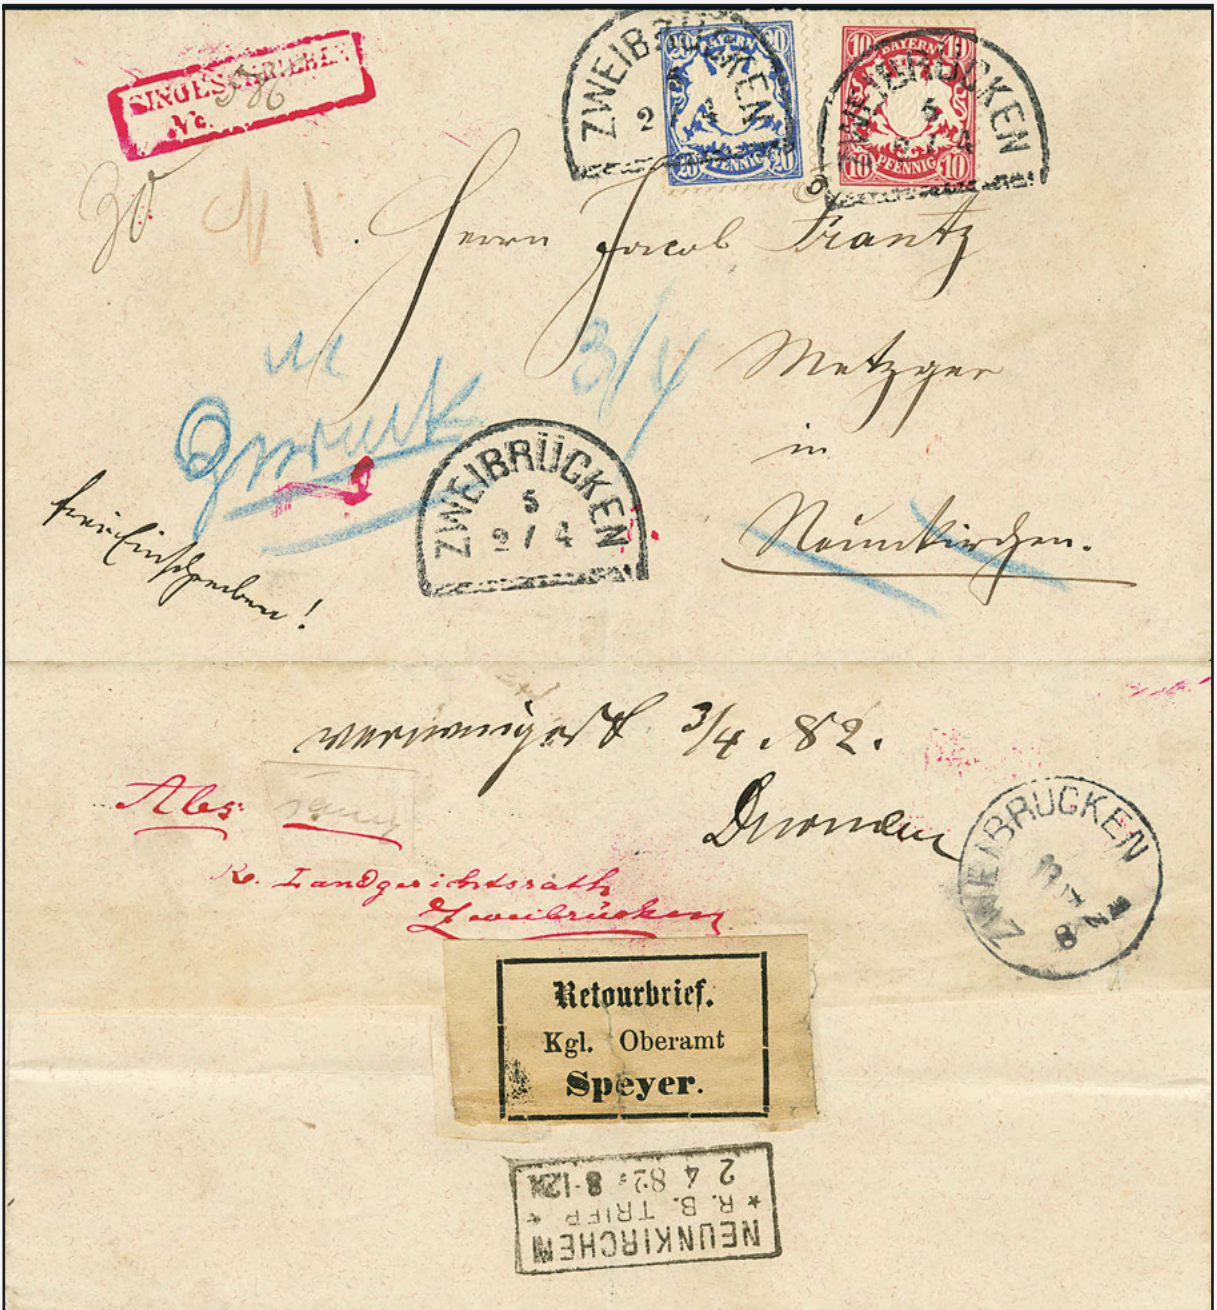 EINGESCHRIEBEN
No. 586
ZWEIBRÜCKEN
2 4
20 BAYERN 20
20 PFENNIG 20
ZWEIBRÜCKEN
5
2 / 4
10 BAYERN 10
10 PFENNIG 10
30
Herrn Jacob Frantz
3/4
Metzger
zurück
in
ZWEIBRÜCKEN
5
2 / 4
Neunkirchen.
frei Einschreiben!
verweigert 3/4. 82.
Abs:
K. Landgerichtsrath
Zweibrücken
ZWEIBRÜCKEN
Retourbrief.
Kgl. Oberamt
Speyer.
NEUNKIRCHEN
* R. B. TRIER *
2 4 82 8-12N